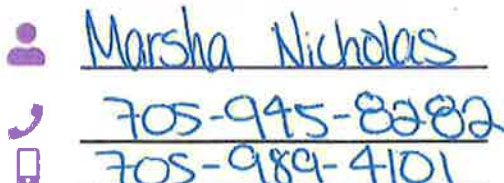 Marsha Nicholas
705-945-8282
705-989-4101